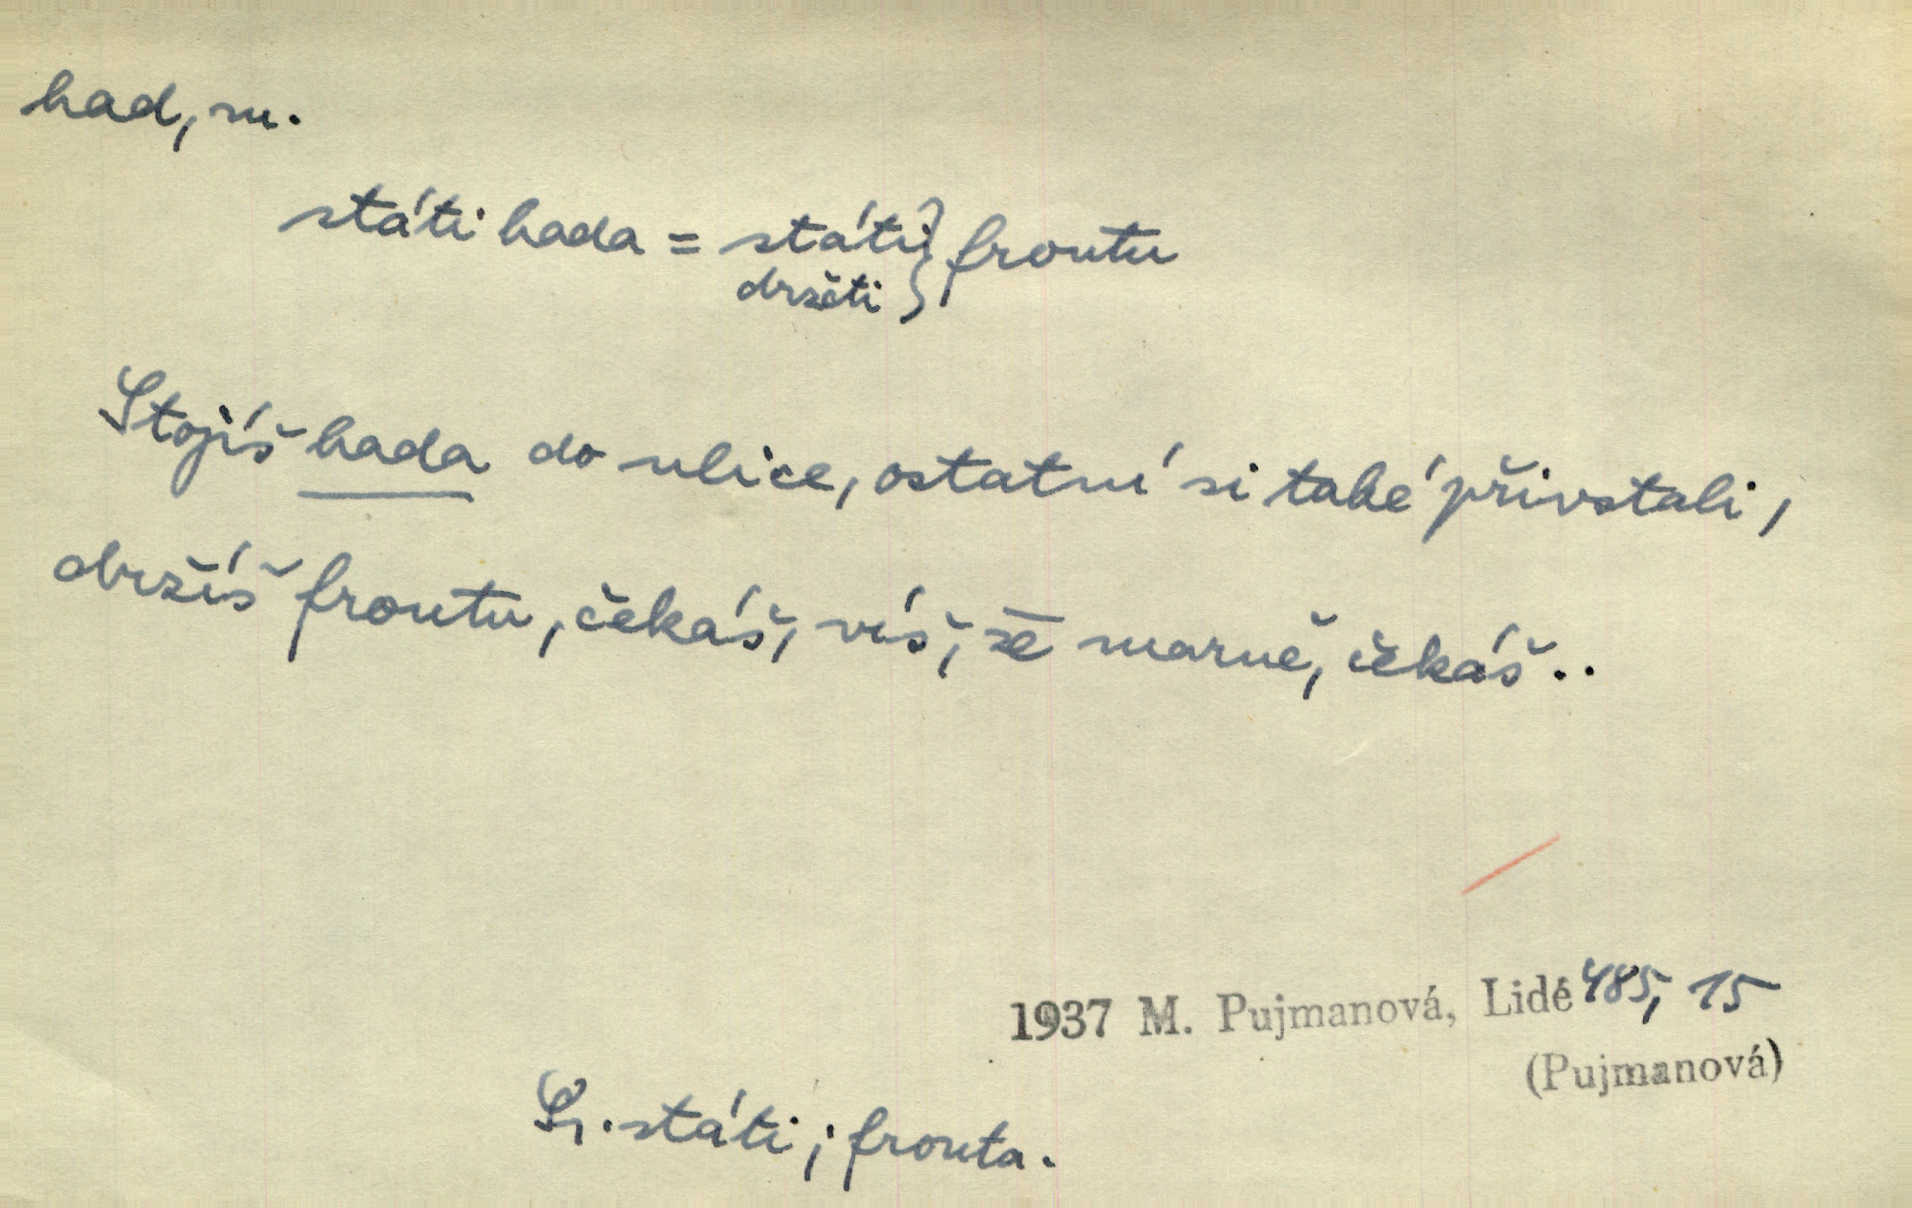 had, m.
státi hada = státi } frontu
držeti
Stojíš hada do ulice, ostatní si také přivstali,
držíš frontu, čekáš, víš, že marně, čekáš..
1937 M. Pujmanová, Lidé 485, 15
(Pujmanová)
Sr. státi; fronta.